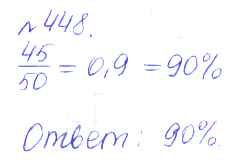 №448.
45/50 = 0,9 = 90%
Ответ: 90%.